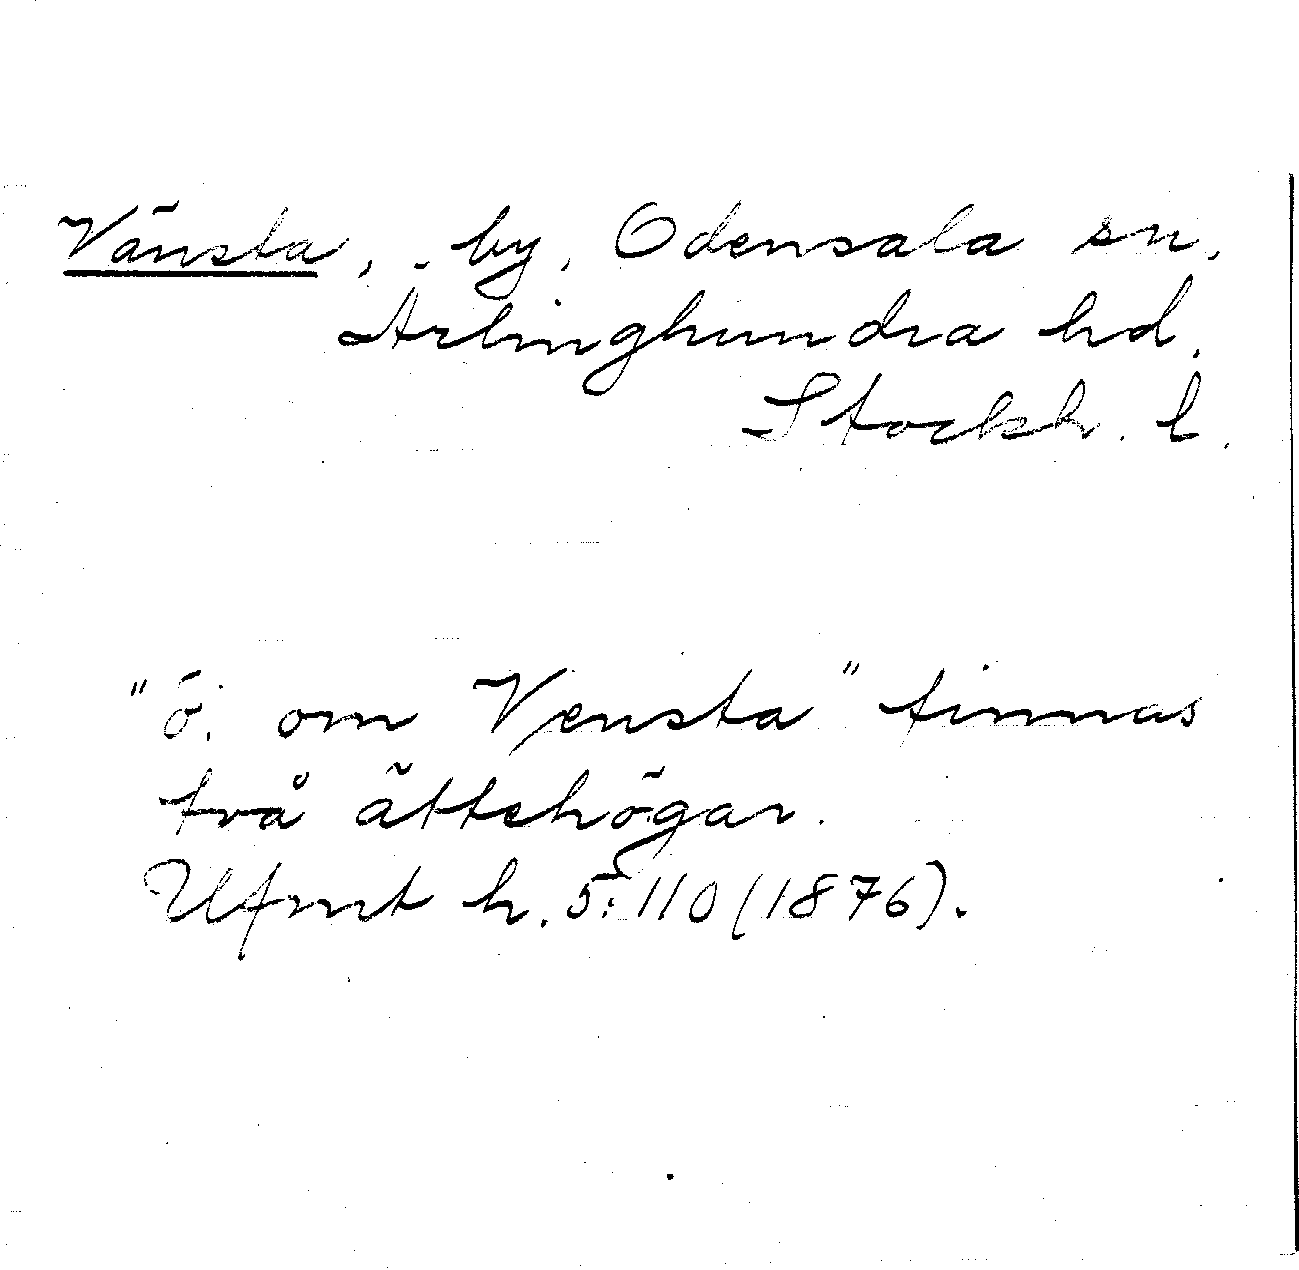 Vänsta, by, Odensala sn,
Ärlinghundra hd.
Stockh. l.
"ö. om Vensta" finnas
två ättehögar.
Ufmt h. 5:110 (1876).